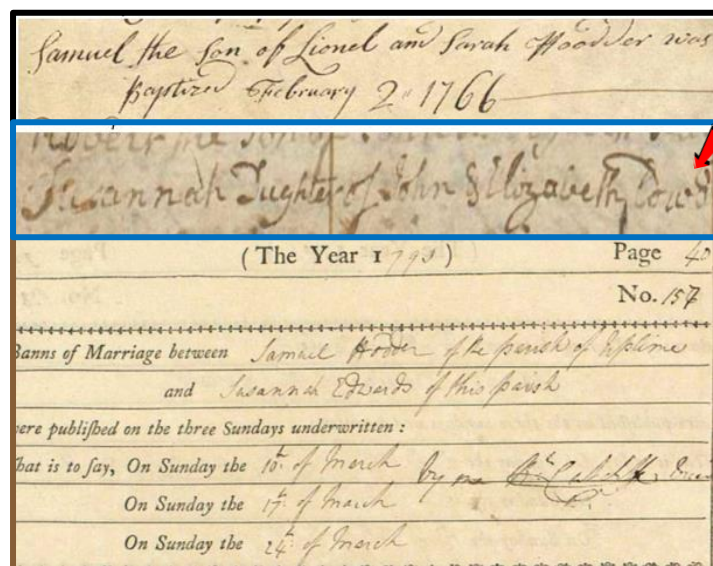 Samuel the Son of Lionel and Sarah Hodder was
Baptized February 2 1766
Susannah Dughter of John & Elizabeth
(The Year 179 ) Page 40
No. 157
Banns of Marriage between Samuel Hodder of the parish of Uplime
and Susannah Edwards of this parish
ere publiſhed on the three Sundays underwritten :
hat is to ſay, On Sunday the 10th. of March by me
On Sunday the 17th. of March
On Sunday the 24th. of March